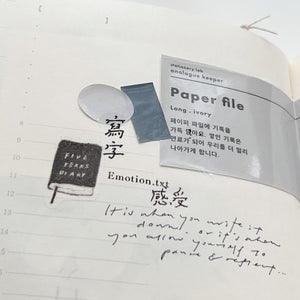 stationery lab
analogue keeper
Paper file
Long . ivory
페이퍼 파일에 기록을
가득 담아요. 쌓인 기록은
연료가 되어 우리를 더 멀리
나아가게 합니다.
寫字
FIVE
YEARS
DIARY
Emotion.txt
感受
It is when you write it
down, or it's when
you allow yourself to
pause & reflect...
8
9
10
11
12
13